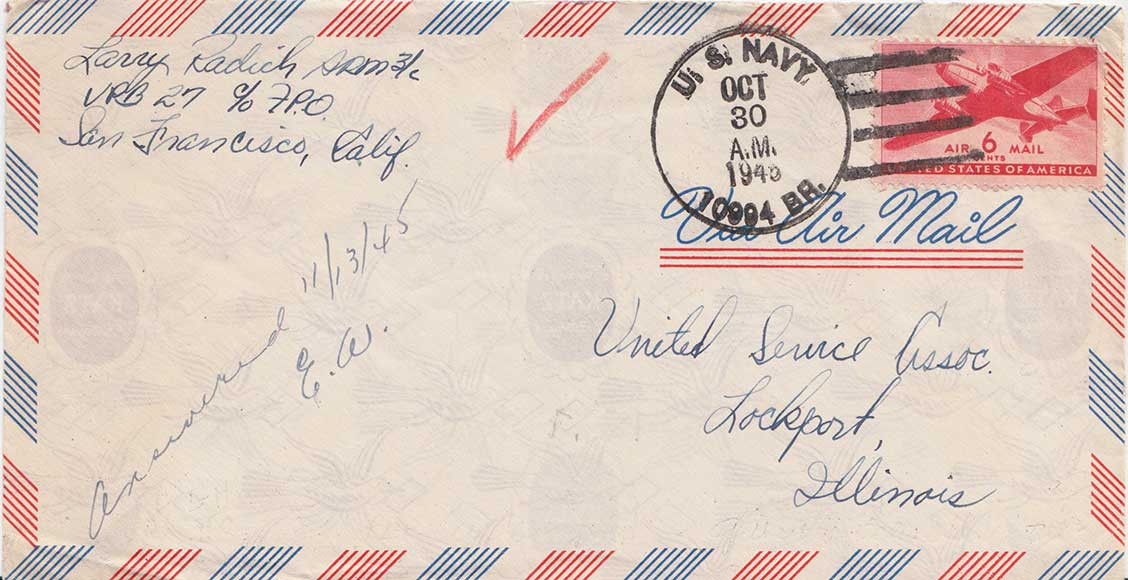 Larry Radich SOM3/c
VRB 27 c/o F.P.O.
San Francisco, Calif.
U. S. NAVY
OCT
30
A.M.
1945
10994 BR.
AIR 6 MAIL
CENTS
UNITED STATES OF AMERICA
Via Air Mail
answered 11/13/45
E. W.
United Service Assoc.
Lockport,
Illinois